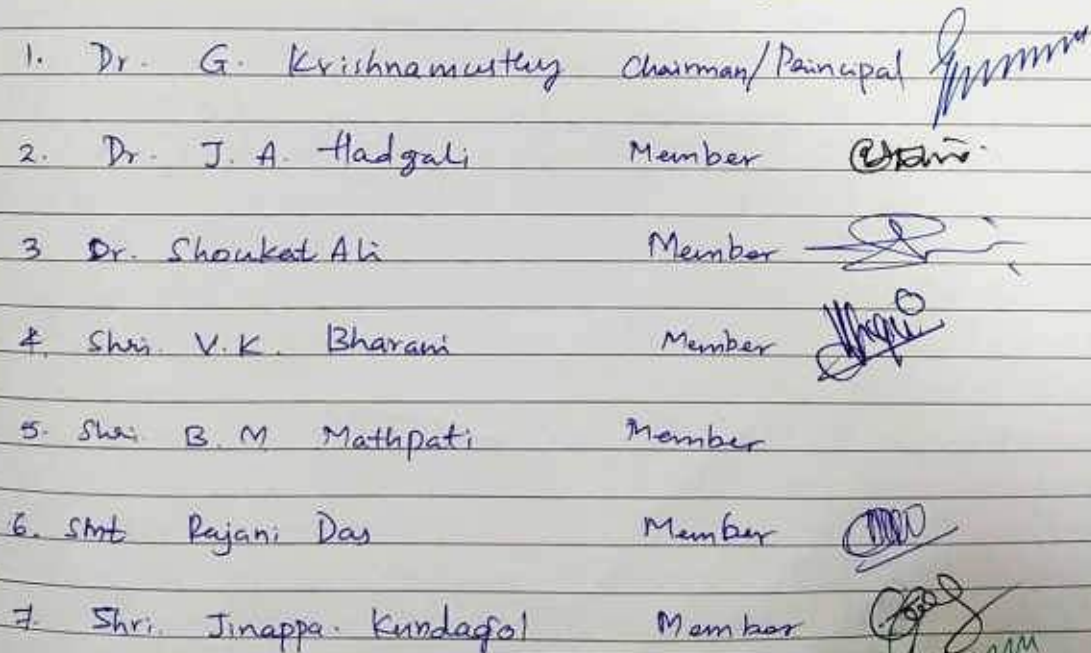 1. Dr. G. Krishnamurthy Chairman/Principal
2. Dr. J. A. Hadgali Member
3 Dr. Shoukat Ali Member
4. Shri. V.K. Bharani Member
5. Shri B. M Mathpati Member
6. Smt Rajani Das Member
7. Shri. Jinappa. Kundagol Member